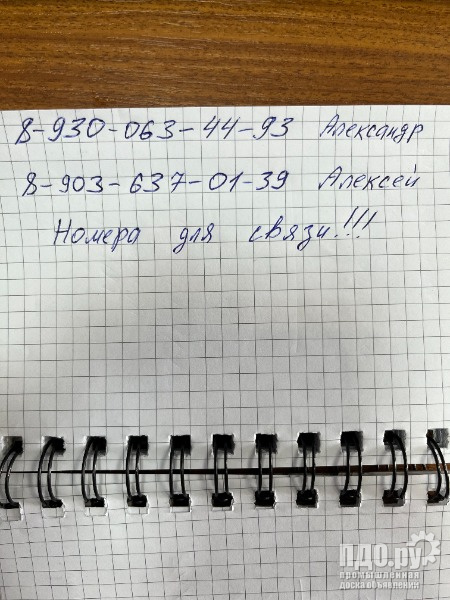 8-930-063-44-93 Александр
8-903-637-01-39 Алексей
Номера для связи!!!
ПДО.ру
промышленная
доска объявлений